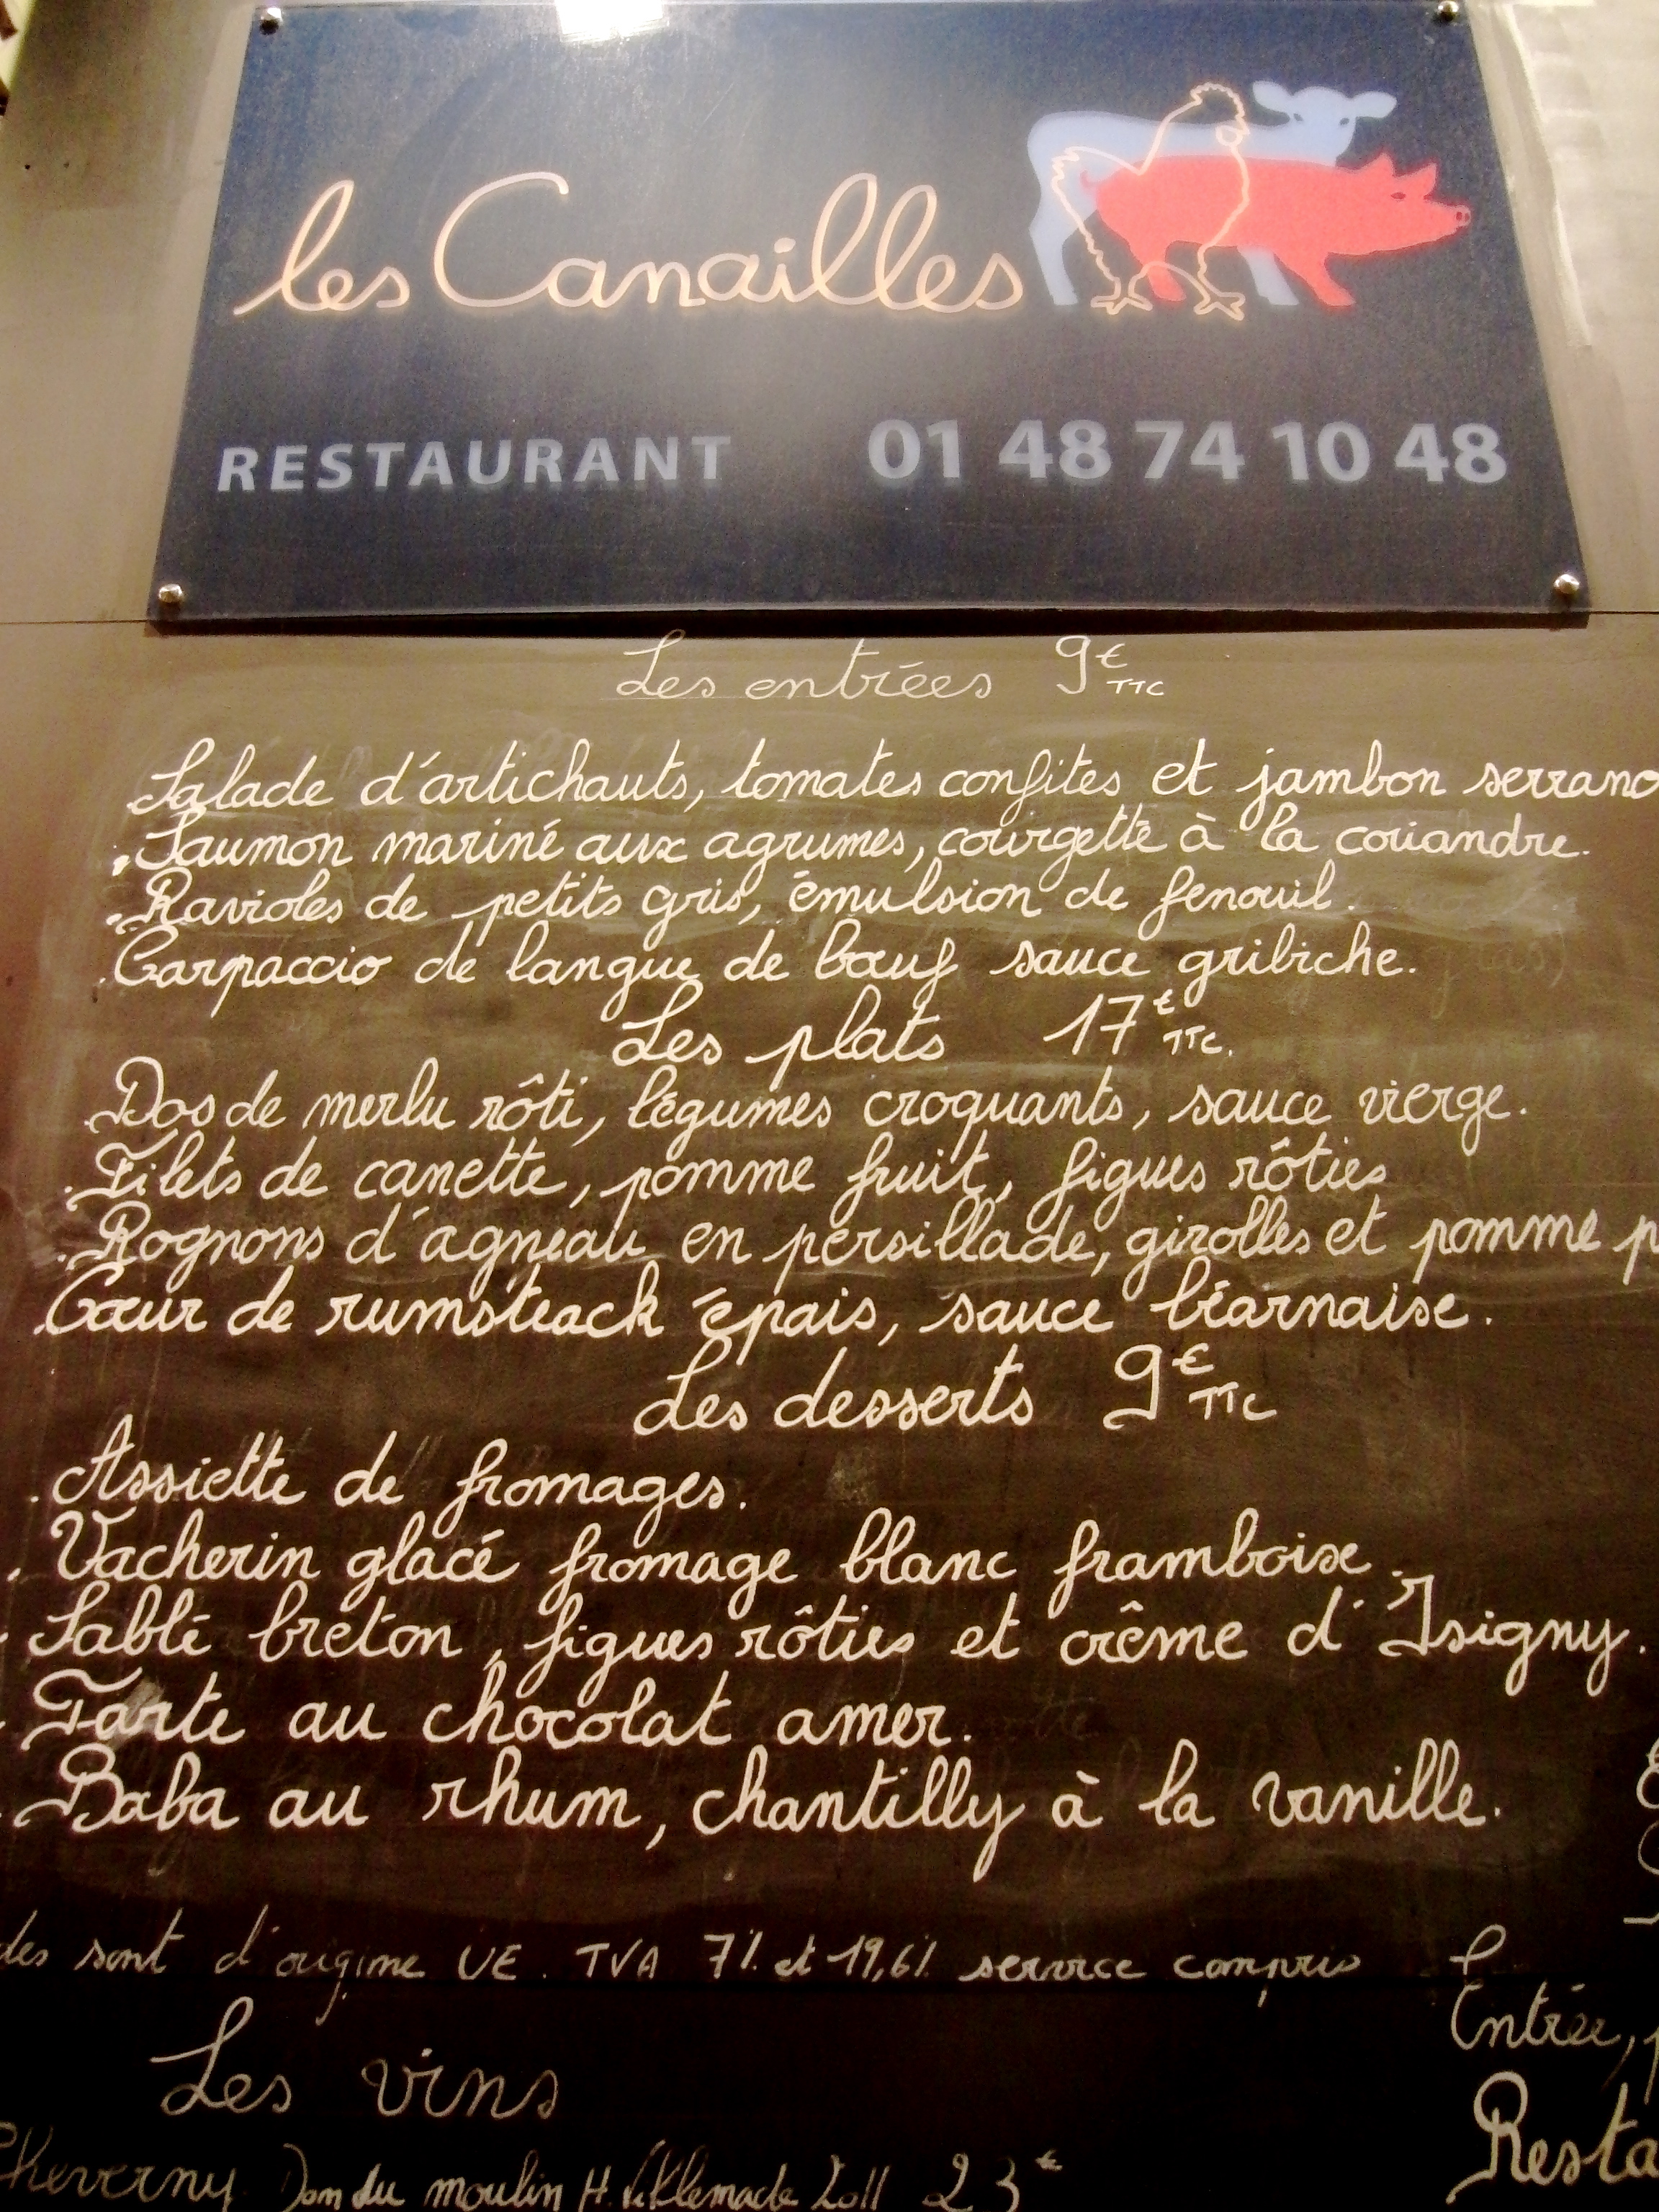 les Canailles
RESTAURANT 01 48 74 10 48
Les entrées 9€ TTC
Salade d'artichauts, tomates confites et jambon serrano
. Saumon mariné aux agrumes, courgette à la coriandre.
. Ravioles de petits gris, émulsion de fenouil.
. Carpaccio de langue de bœuf sauce gribiche.
Les plats 17€ TTC.
. Dos de merlu rôti, légumes croquants, sauce vierge.
. Filets de canette, pomme fruit, figues rôties
. Rognons d'agneau en persillade, girolles et pomme p
. Cœur de rumsteack épais, sauce béarnaise.
Les desserts 9€ TTC
. Assiette de fromages.
. Vacherin glacé fromage blanc framboise.
. Sablé breton, figues rôties et crême d'Isigny.
. Tarte au chocolat amer.
. Baba au rhum, chantilly à la vanille.
des sont d'origine UE. TVA 7% et 19,6% service compris
Les vins
Entrée, p
Cheverny Dom du moulin H. Villemade 2011 23€
Resta